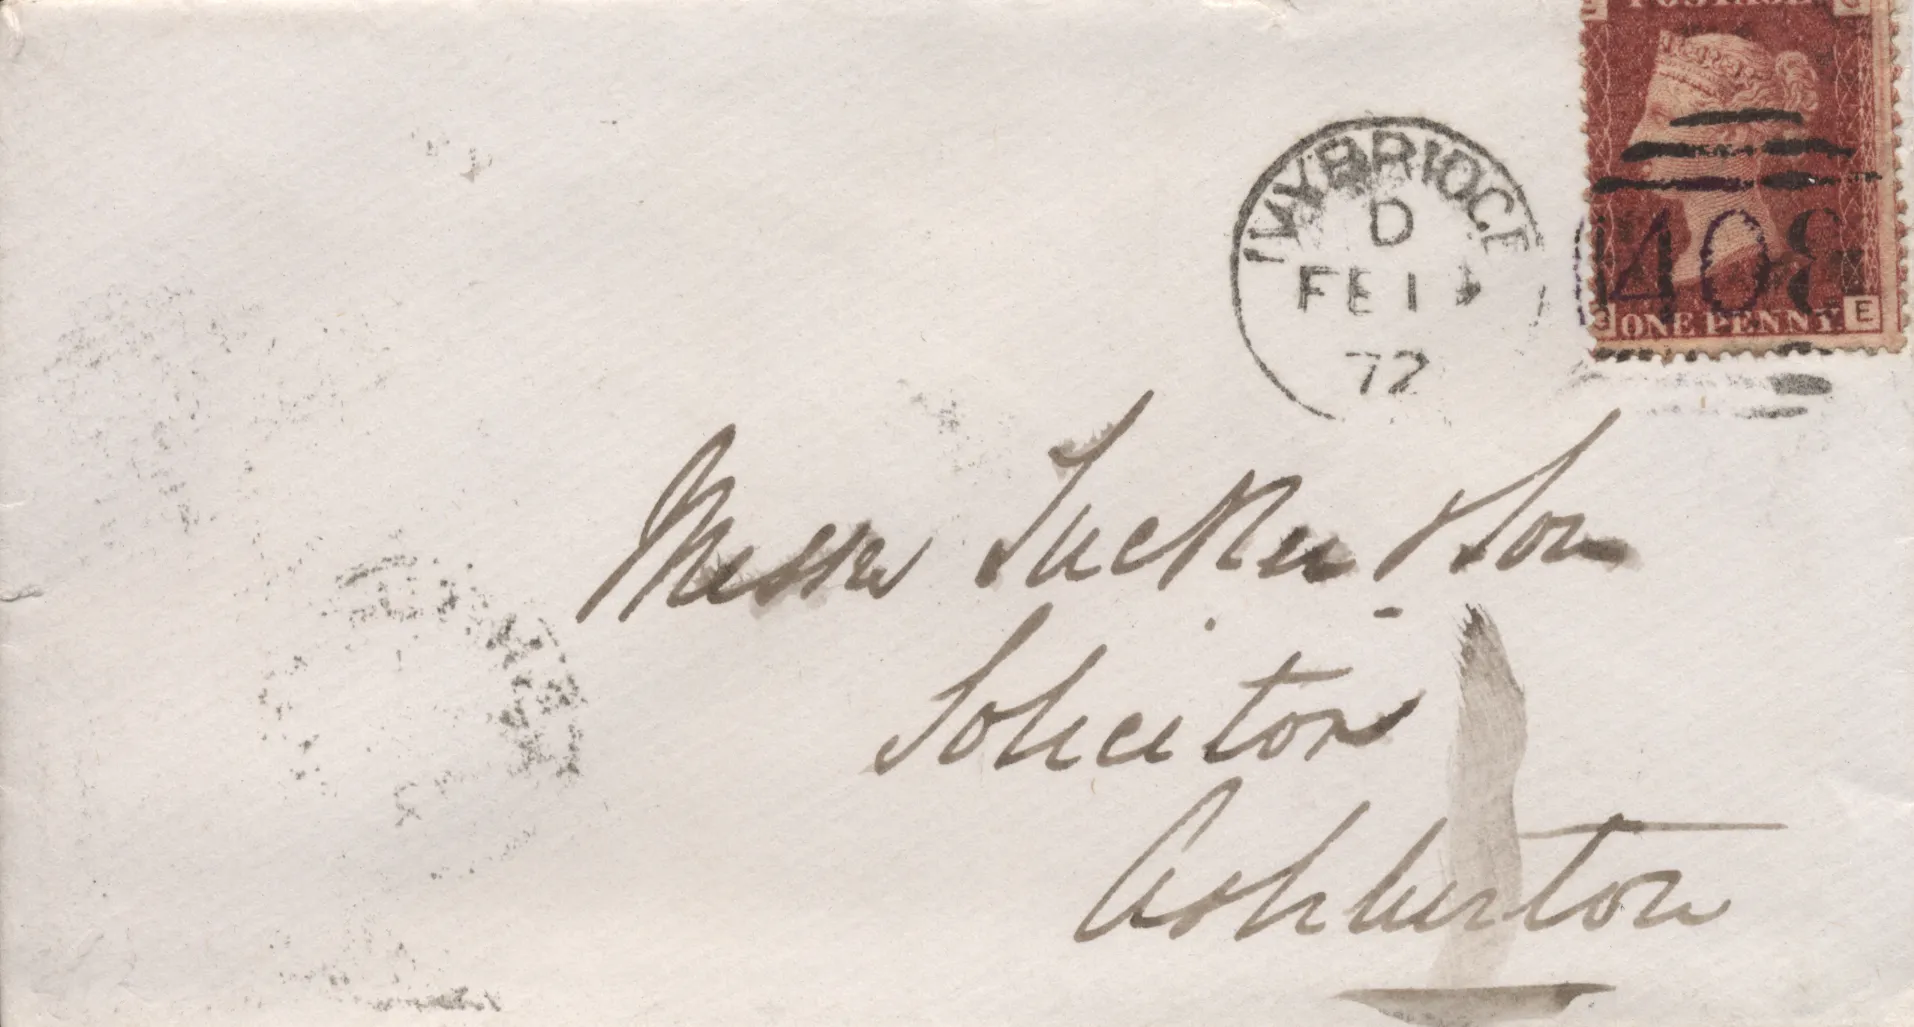 POSTAGE
IVYBRIDGE
D
FE 1
72
408
E
ONE PENNY
Messrs Tucker & Son
Solicitors
Ashburton